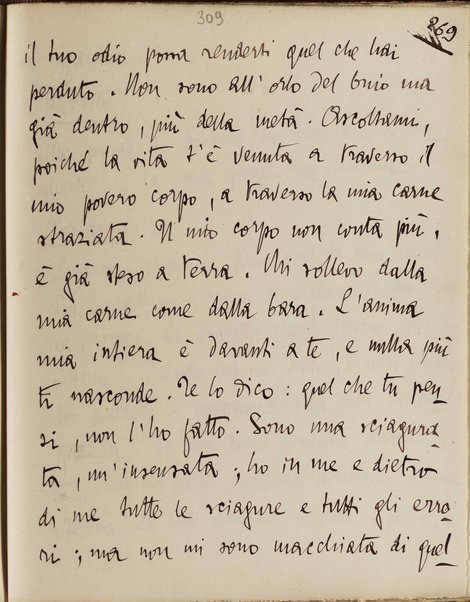 309
269
il tuo odio possa renderti quel che hai
perduto. Non sono all'orlo del buio ma
già dentro, più della metà. Ascoltami,
poiché la vita t'è venuta a traverso il
mio povero corpo, a traverso la mia carne
straziata. Il mio corpo non conta più,
è già steso a terra. Mi sollevo dalla
mia carne come dalla bara. L'anima
mia intiera è davanti a te, e nulla più
ti nasconde. Te lo dico: quel che tu pen-
si, non l'ho fatto. Sono una sciagura-
ta, un'insensata; ho in me e dietro
di me tutte le sciagure e tutti gli erro-
ri; ma non mi sono macchiata di quel-